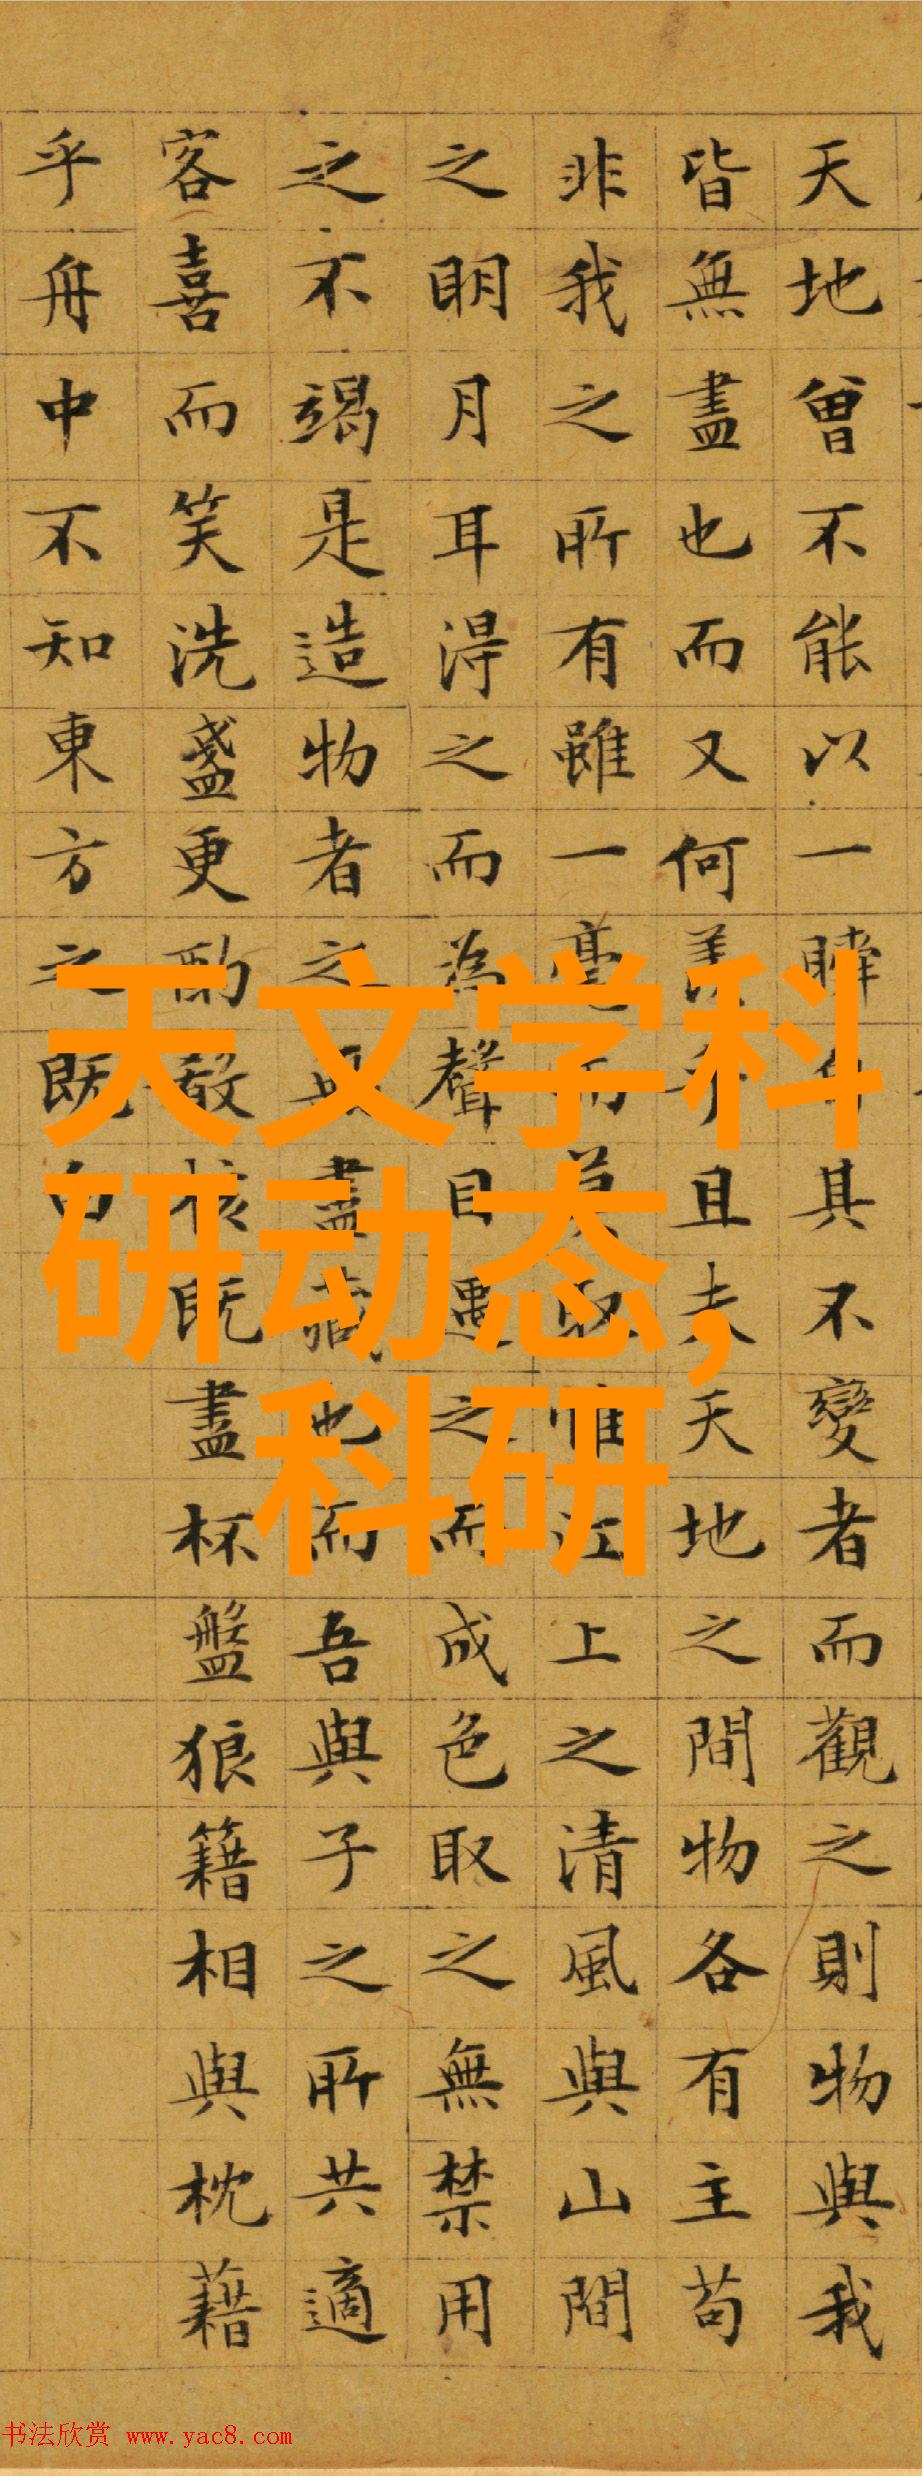 天地曾不能以一瞬而具不變者而觀之則物與我
皆無盡也而又何羨乎且夫天地之間物各有主苟
非我之所有雖一毫而莫取惟江上之清風與山間
之明月耳得之而為聲目遇之而成色取之無禁用
之不竭是造物者之無盡藏也而吾與子之所共適
客喜而笑洗盞更酌殽核既盡杯盤狼籍相與枕藉
乎舟中不知東方之既白
天文学科
研动态,
科研
书法欣赏 www.yac8.com